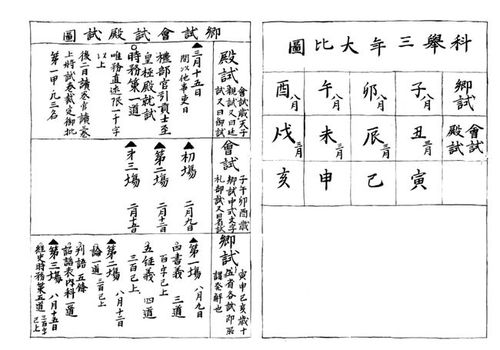 科舉三年大比圖
鄉試
殿試
會試
子八月
卯八月
午八月
酉八月
丑二月三月
辰二月三月
未二月三月
戌二月三月
寅
巳
申
亥
鄉試會試殿試圖
殿試
會試歲天子
親試又曰廷
試又曰御試
三月十五日
間以他事更日
禮部官引貢士至
皇極殿就試
時務策一道
唯務直述限一千字
以上
後二日讀卷官讀卷
上將試卷裁定御批
第一甲凡三名
會試
子午卯酉歲
鄉試中式文字
禮部試又曰省試
初場 二月九日
第二場 二月十二日
第三場 二月十五日
鄉試
寅申巳亥歲十
第一場 八月九日
四書義 三道
二百字已上
五經義 四道
三百已上
第二場 八月十二日
論一道 三百已上
判語五條
詔誥表內科一道
第三場 八月十五日
經史時務策五道 三百字已上